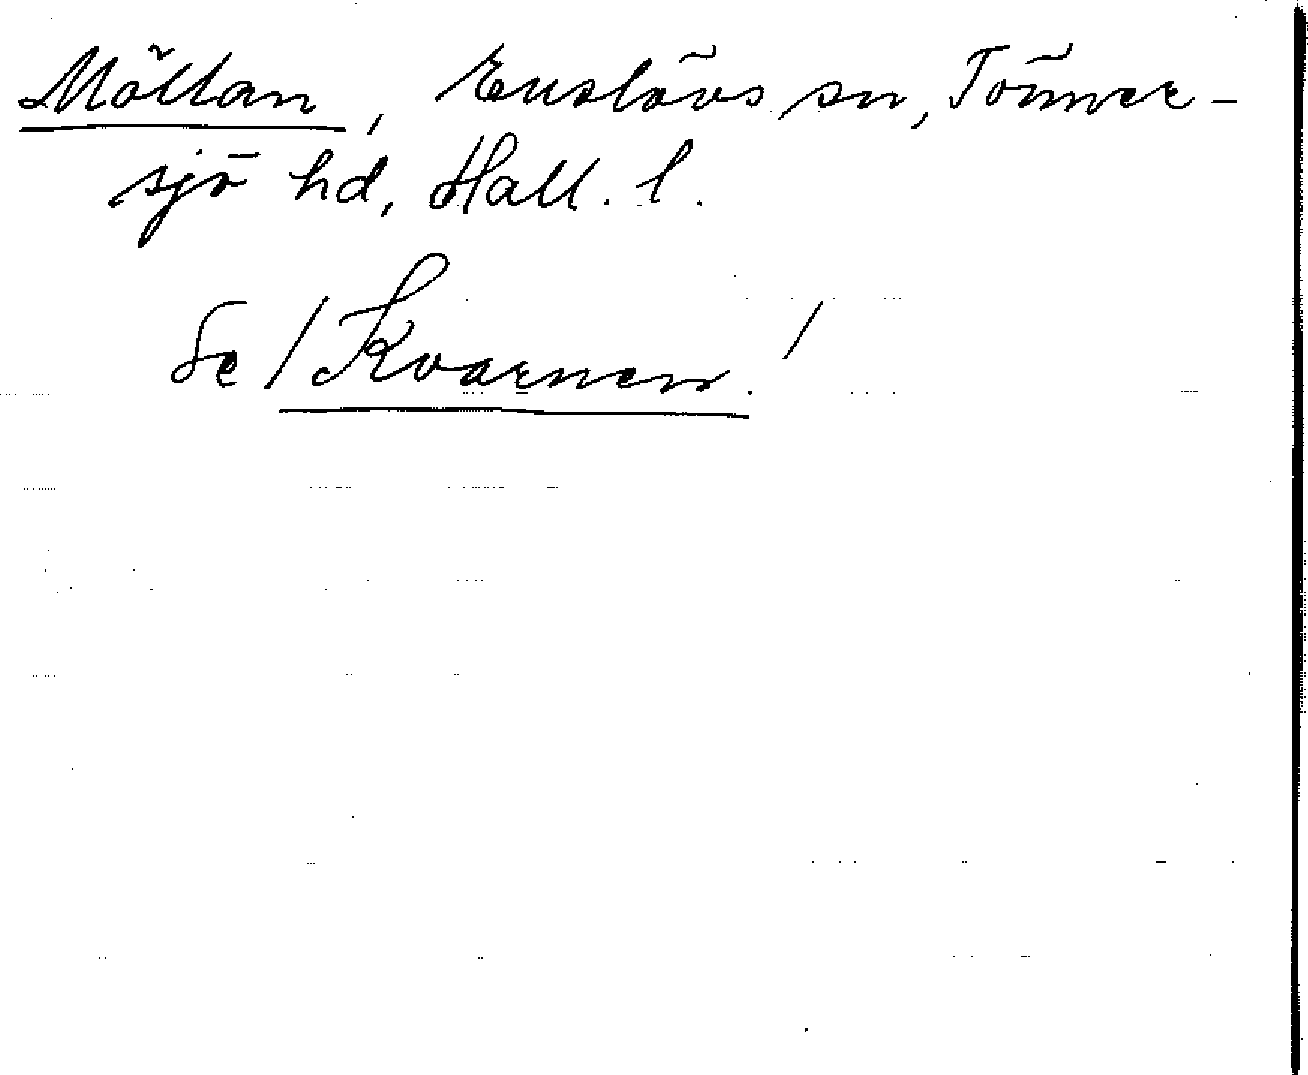 Möllan, Enslövs sn, Tönner-
sjö hd, Hall. l.
Se /Kvarnen./